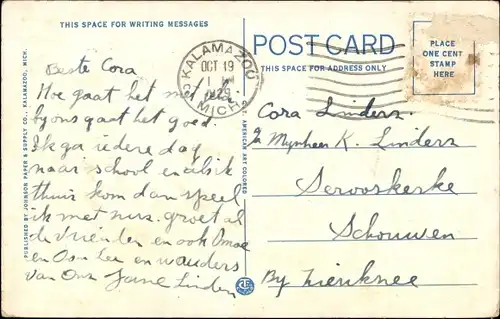 THIS SPACE FOR WRITING MESSAGES
Beste Cora
Hoe gaat het met
by ons gaat het goed.
Ik ga iedere dag
naar school en als ik
thuis kom dan speel
ik met nurs. groet al
de vrienden en ook Omoe
en en wouders
van Ons Jane Linders
PUBLISHED BY JOHNSON PAPER & SUPPLY CO., KALAMAZOO, MICH.
KALAMAZOO
OCT 19
1929
MICH.
POST CARD
THIS SPACE FOR ADDRESS ONLY
PLACE
ONE CENT
STAMP
HERE
C. T. AMERICAN ART COLORED
Cora Linders.
Mynheer K. Linders
Serooskerke
Schouwen
By Zierikzee